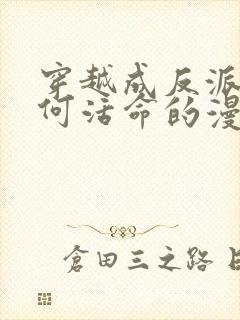 穿越成反派
何活命的漫
倉田三之路